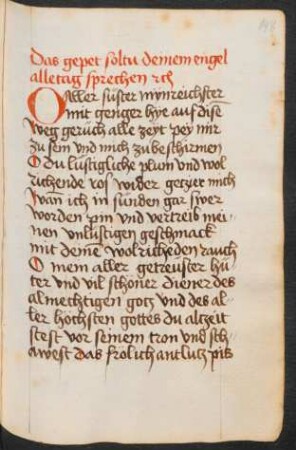 Das gepet soltu deinem engel
alletag sprechen etc
O aller süster mynreichster
mit genger hye auf dise
weg geruch alle zeyt pey mir
zu sein und mich zu beschirmen
O du lustigliche plum und wol
richende ros wider mich
wan ich in sunden gar swer
worden pin und vertreib mei
nen unlustigen geschmack
mit deine wolricheden rauch
O mein aller getreuster hu
ter und vil schoner diener des
almechtigen gotz und des al
ler hochsten gottes du altzeit
stest vor seinem tron und sch
awest das frolich antlutz pit